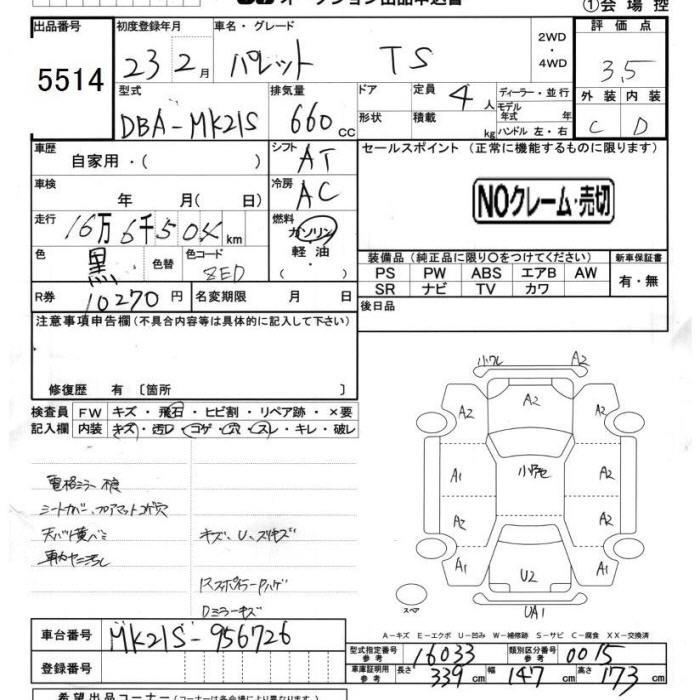 オークション出品申込書
①会場控
出品番号 初度登録年月 車名・グレード 評価点
5514 23 2月 パレット TS 2WD・4WD 3,5
型式 排気量 ドア 定員 ディーラー・並行 外装 内装
DBA-MK21S 660cc 4人 モデル年式 年 C D
形状 積載 kg ハンドル 左・右
車歴 シフト セールスポイント (正常に機能するものに限ります)
自家用・( ) AT
車検 冷房 NOクレーム・売切
年 月( 日) AC
走行 燃料
16万6千50 km ガソリン・軽油・( )
色 色替 色コード 装備品 (純正品に限り○をつけてください) 新車保証書
黒 ZED PS PW ABS エアB AW 有・無
SR ナビ TV カワ
R券 10270円 名変期限 月 日 後日品
注意事項申告欄 (不具合内容等は具体的に記入して下さい)
修復歴 有 〔箇所 〕
検査員 FW キズ・飛石・ヒビ割・リペア跡・×要
記入欄 内装 キズ・汚レ・コゲ・穴・スレ・キレ・破レ
電格ミラー不良
シートカバー、フロアマットコゲ穴
天バリ黄バミ
車内ヤニ汚し
キズ、U、スリキズ
RスポイラーPハゲ
Dミラーキズ
小ワレ A2
A2 A2 A2
A1 小 A2
A2 A2
A1 U2 A1
スペア UA1
A-キズ E-エクボ U-凹み W-補修跡 S-サビ C-腐食 XX-交換済
車台番号 MK21S-956726
登録番号
型式指定番号 参考 16033 類別区分番号 参考 0015
車庫証明用 参考 長さ 339cm 幅 147cm 高さ 173cm
希望出品コーナー (コーナーは各会場により異なります)